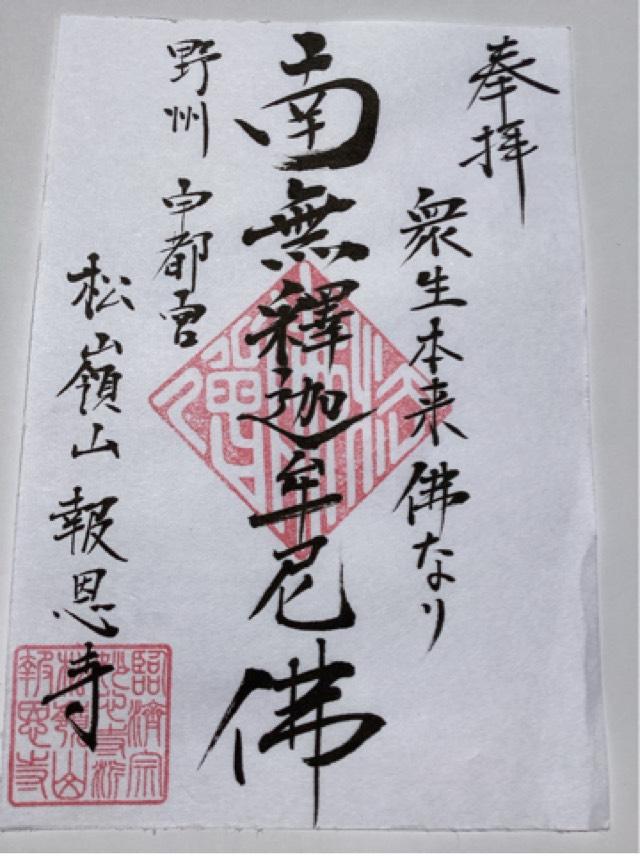 奉拝
衆生本来佛なり
南無釋迦牟尼佛
野州 宇都宮
松嶺山 報恩寺
臨済宗
妙心寺派
松嶺山
報恩寺